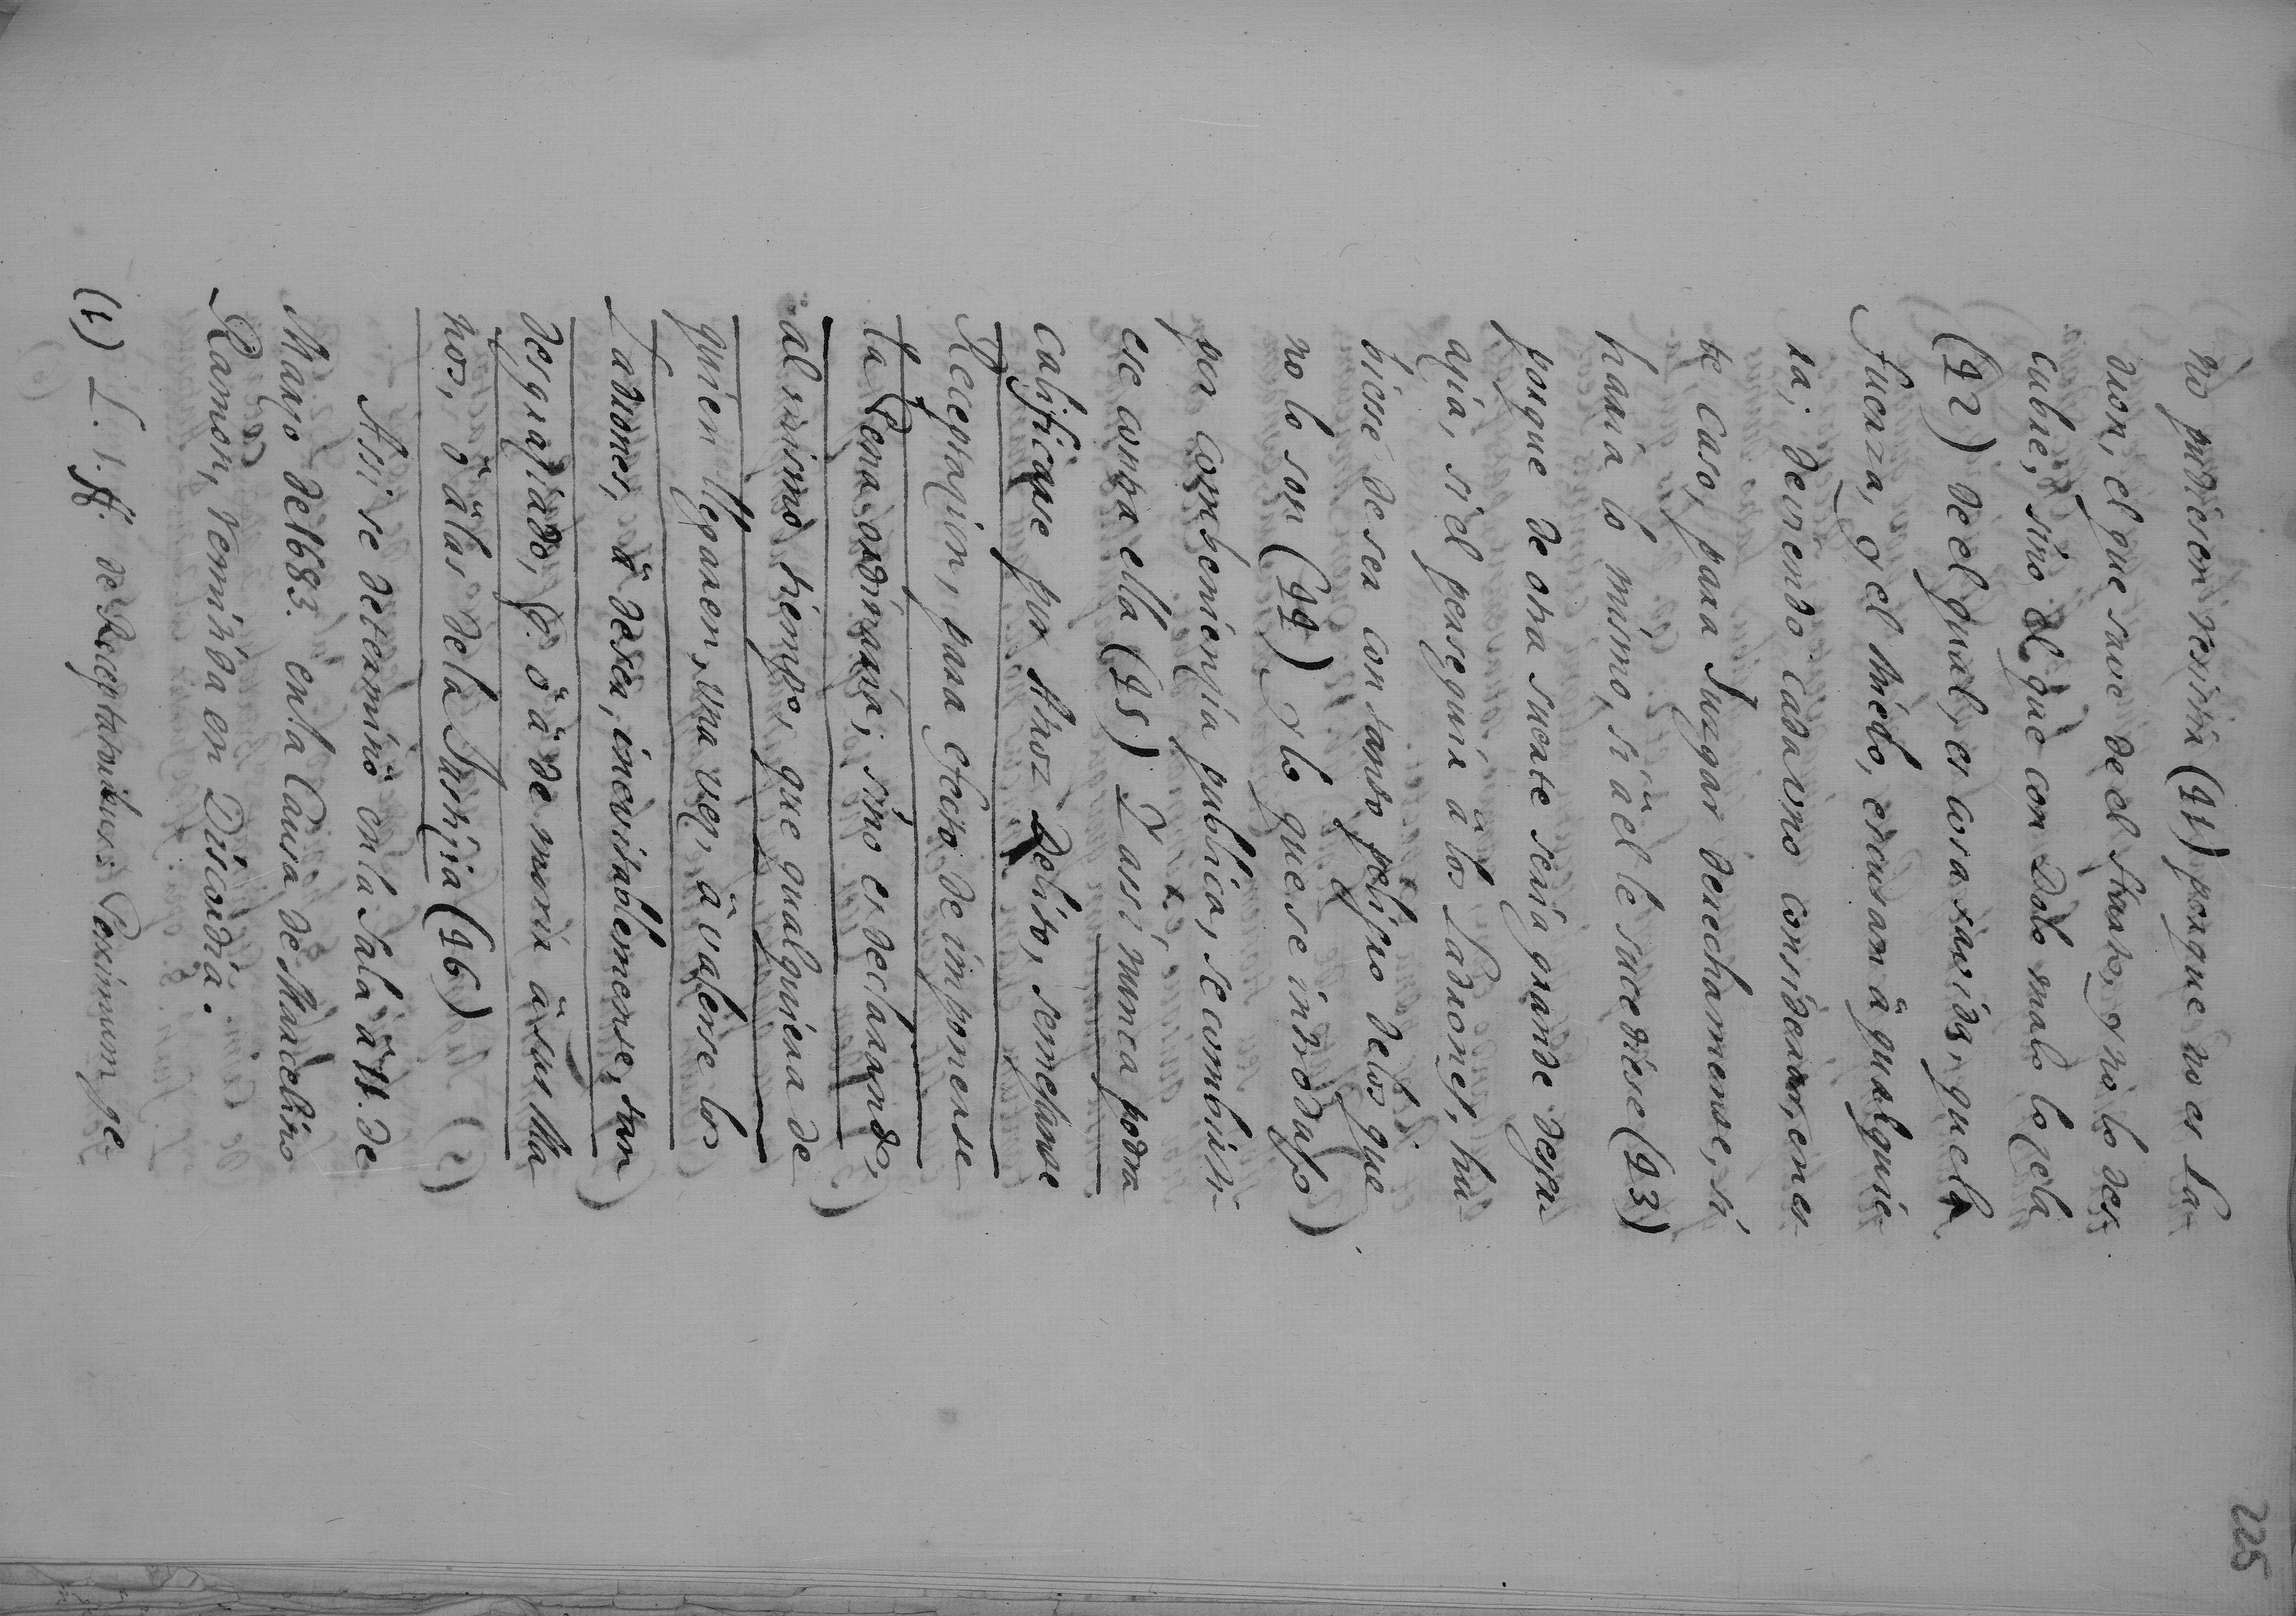 225
no pudiesen resistir (91) porque no es La-
dron, el que save de el Hurto, y no lo des-
cubre, sino el que con Dolo malo lo cela
(92) de el qual, es cosa savida, que la
Fuerza, y el Miedo, escusan â qualquie-
ra; deviendo cada vno considerar, en es-
te caso, para Juzgar derechamente, si
haria lo mismo, si â el le sucediese (93)
porque de otra suerte seria grande desgr-
açia, si el perseguir â los Ladrones, hu-
biese de ser con tanto peligro de los que
no lo son (94) y lo que se introdujo
por combeniençia publica, se combirti-
ese contra ella (95) Y assi nunca podra
calificarse por Atroz Delito, semejante
Receptaçion, para efecto de imponerse
la Pena ordinaria; sino es declarando,
al mismo tiempo, que qualquiera de
quien llegaren, vna vez, â valerse los
Ladrones, â de ser, inevitablemente, tan
desgraçiado, q. ô â de morir â sus Ma-
nos, ô âlas dela Justiçia (96)
Assi se determinô en la Sala â 11. de
Marzo de 1683. en la Causa de Marcelino
Ramon, Venninda en Discordia.
(1) L. 1. ff. de Receptatoribus: Pessimum ge-